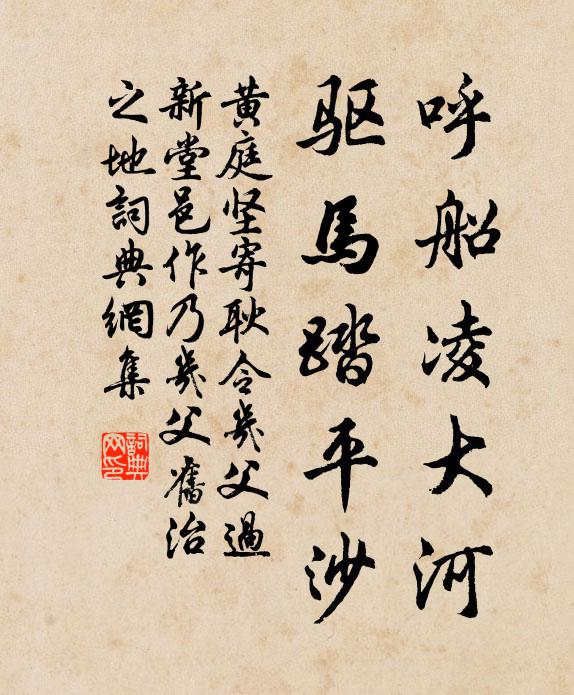 呼船凌大河
驱馬踏平沙
黄庭坚寄耿令幾父過
新堂邑作乃幾父舊治
之地詞典網集
詞典
网印